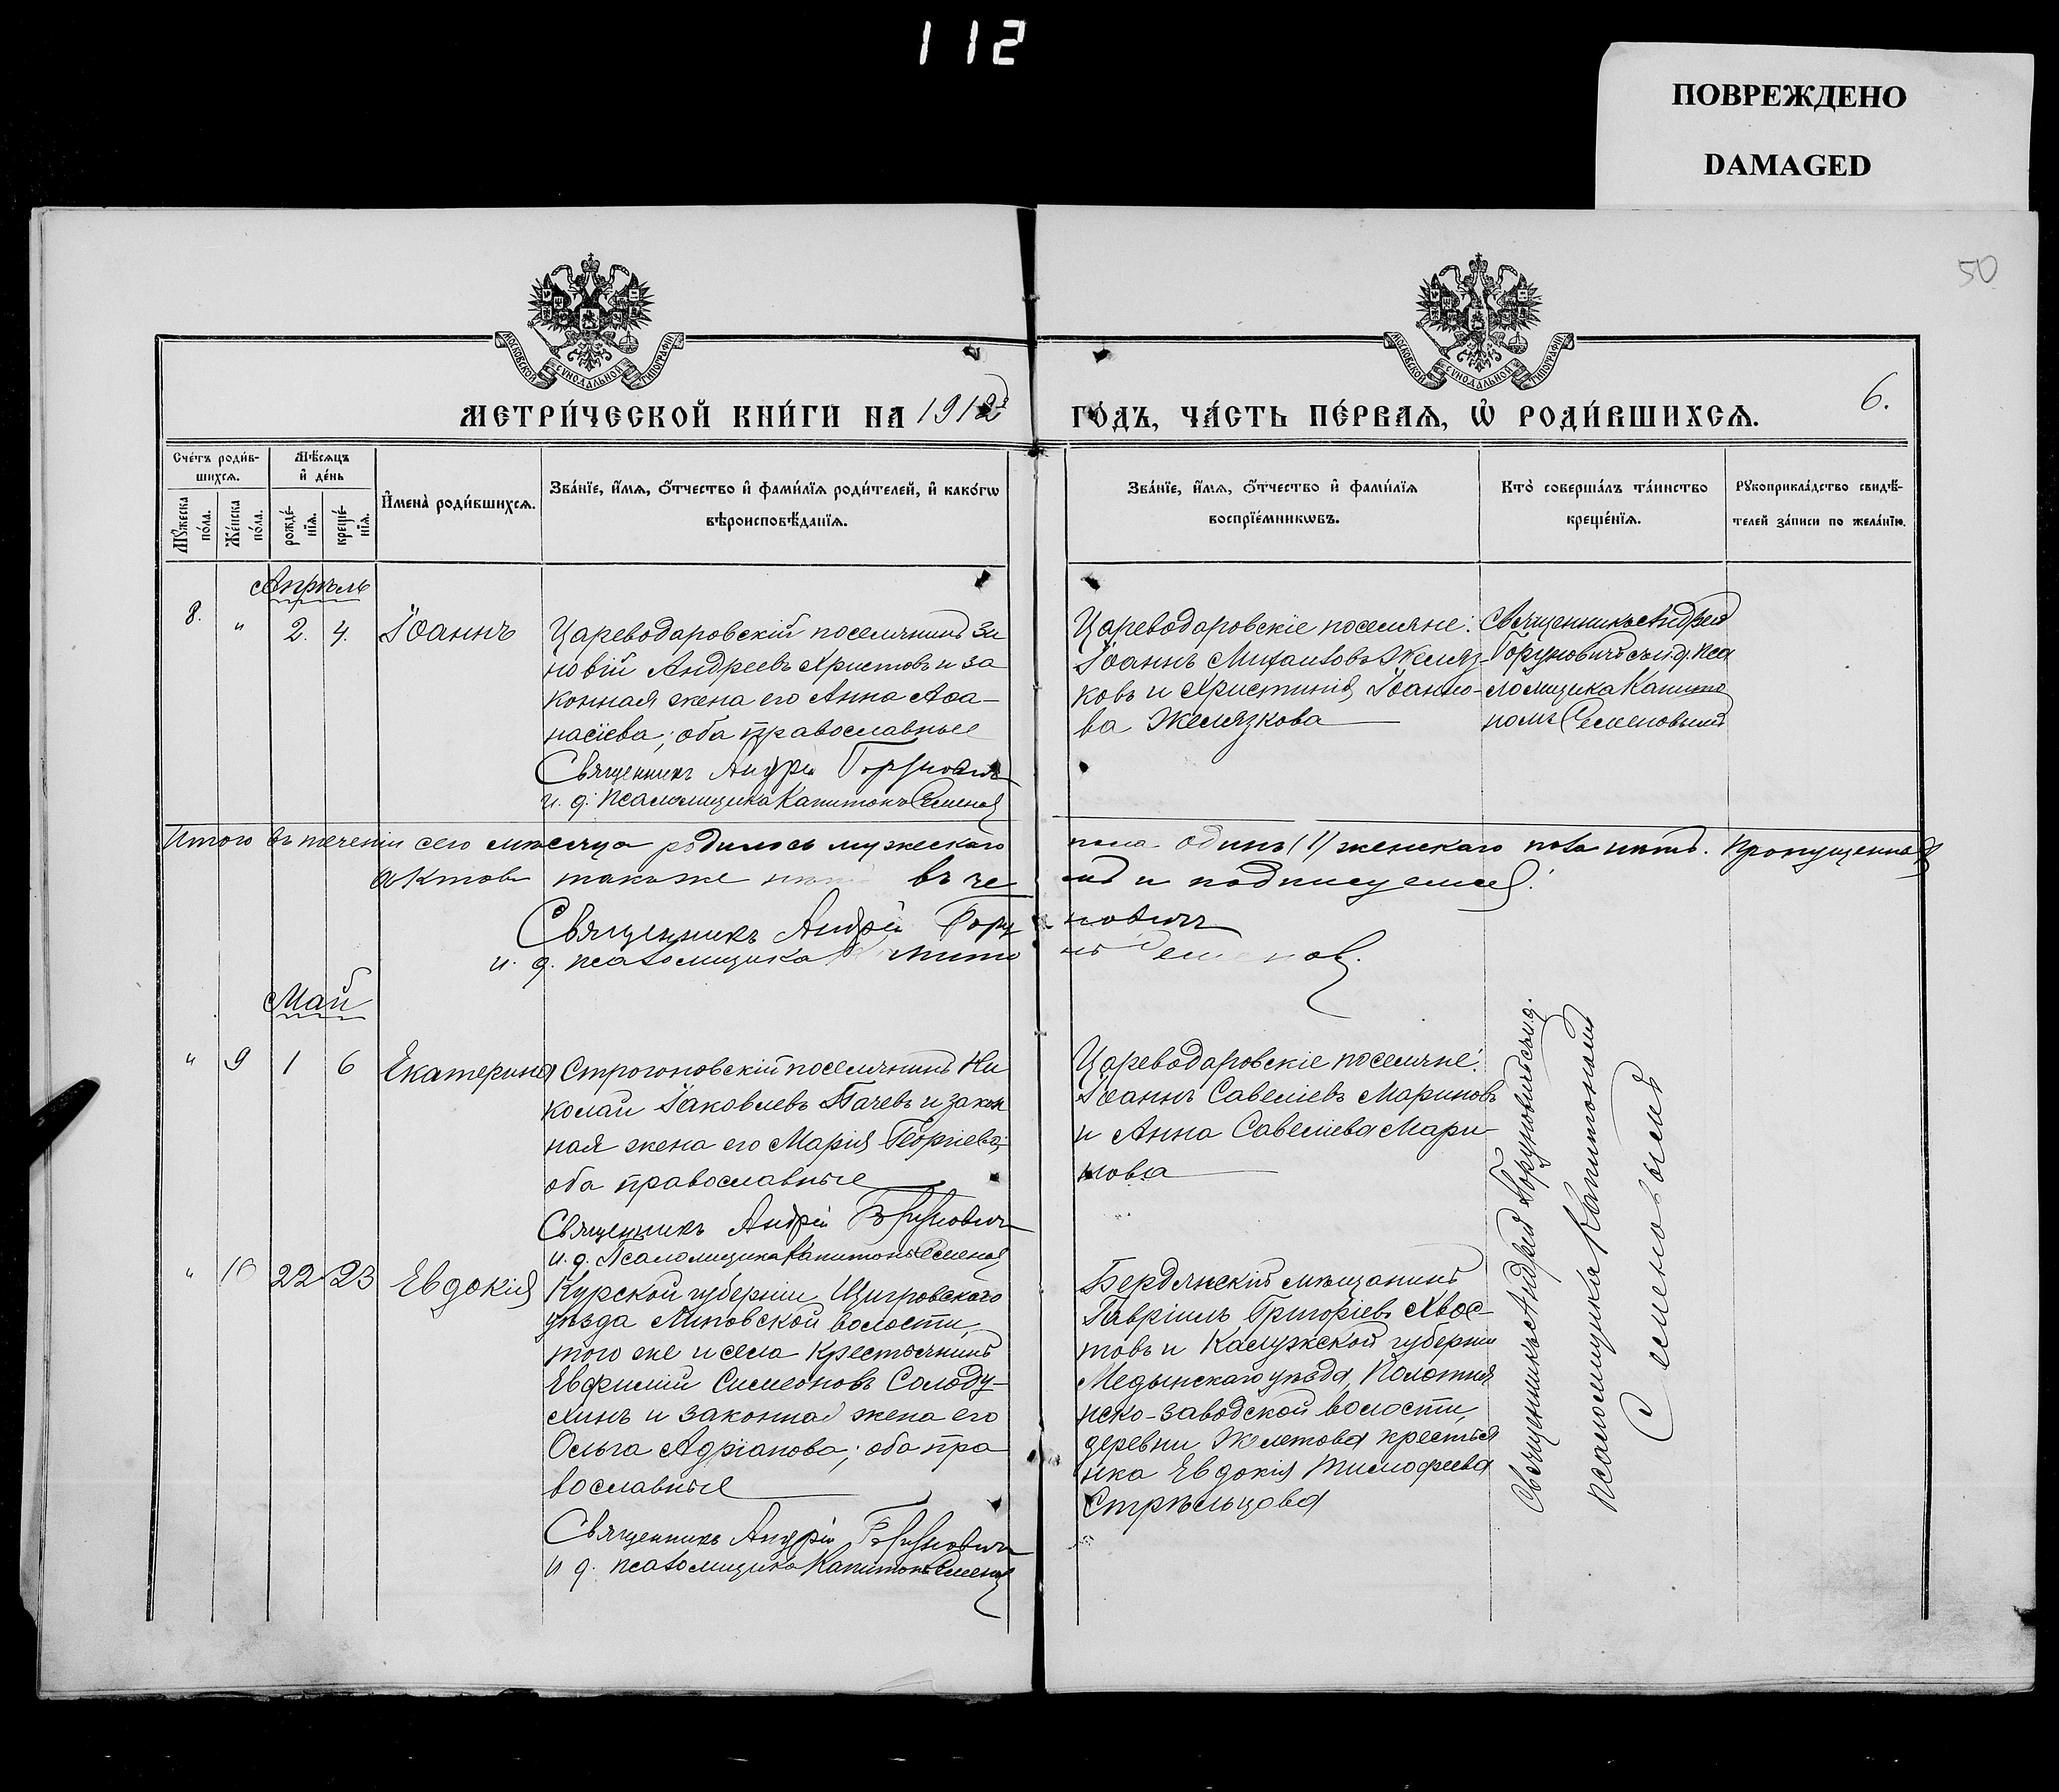 112
ПОВРЕЖДЕНО
DAMAGED
50
МОСКОВСКОЙ СѴНОДАЛЬНОЙ ТИПОГРАФІИ
МОСКОВСКОЙ СѴНОДАЛЬНОЙ ТИПОГРАФІИ
6.
МЕТРИ́ЧЕСКОЙ КНИ́ГИ НА 1912й ГО́ДЪ, ЧА́СТЬ ПЕ́РВАЯ, Ѡ РОДИ́ВШИХСЯ.
Сче́тъ роди́в-
шихся.
Мѣ́сяцъ
и де́нь
Мужеска
по́ла.
Же́нска
по́ла.
рожде́-
нїя.
креще́-
нїя.
Имена̀ роди́вшихся.
Зва́нїе, и́мя, о́тчество и фами́лїя роди́телей, и како́гѡ
вѣроисповѣ́данїя.
Зва́нїе, и́мя, о́тчество и фами́лїя
воспрїе́мникѡвъ.
Кто̀ соверша́лъ та́инство
креще́нїя.
Рукоприкла́дство свидѣ́-
телей за́писи по жела́нїю.
Апрѣль
8. " 2. 4. Іоаннъ
Цареводаровскій поселянинъ Зи
новій Андреевъ Христовъ и за
конная жена его Анна Аѳа-
насіева; оба православные
Священникъ Андрей Горуновичъ
и. д. Псаломщика Капитонъ Семенов
Цареводаровскіе поселяне:
Іоаннъ Михаиловъ Желяз-
ковъ и Христинія Іоанно-
ва Желязкова
Священникъ Андрей
Горуновичъ съ и. д. Пса
ломщика Капито
номъ Семеновымъ
Итого въ теченіи сего мѣсяца родилось мужескаго пола один (1) женскаго пола нѣтъ. Пропущенныхъ
актовъ также нѣтъ въ че мъ и подписуемся:
Священникъ Андрей Горуновичъ
и. д. псаломщика Капитонъ Семенов.
Май
" 9 1 6 Екатерина
Строгоновскій поселянинъ Ни
колай Іаковлевъ Тачевъ и закон
ная жена его Марія Георгіева;
оба православные
Священникъ Андрей Горуновичъ
и. д. Псаломщика Капитонъ Семенов
Цареводаровскіе поселяне:
Іоаннъ Савеліевъ Мариновъ
и Анна Савеліева Мари-
нова
" 10 22 23 Евдокія
Курской губерніи Щигровского
уѣзда Липовской волости,
того же и села крестьянинъ
Евфимій Симеоновъ Солоду-
хинъ и законная жена его
Ольга Адріанова; оба пра
вославные
Священникъ Андрей Горуновичъ
и д. псаломщика Капитонъ Семенов
Бердянскій мѣщанинъ
Гавріилъ Григоріевъ Хвос-
товъ и Калужской губерніи
Медынскаго уѣзда, Полотня
нско-заводской волости,
деревни Желтова крестья
нка Евдокія Тимофеева
Стрѣльцова
Священникъ Андрей Горуновичъ съ и. д.
псаломщика Капитономъ
Семеновымъ